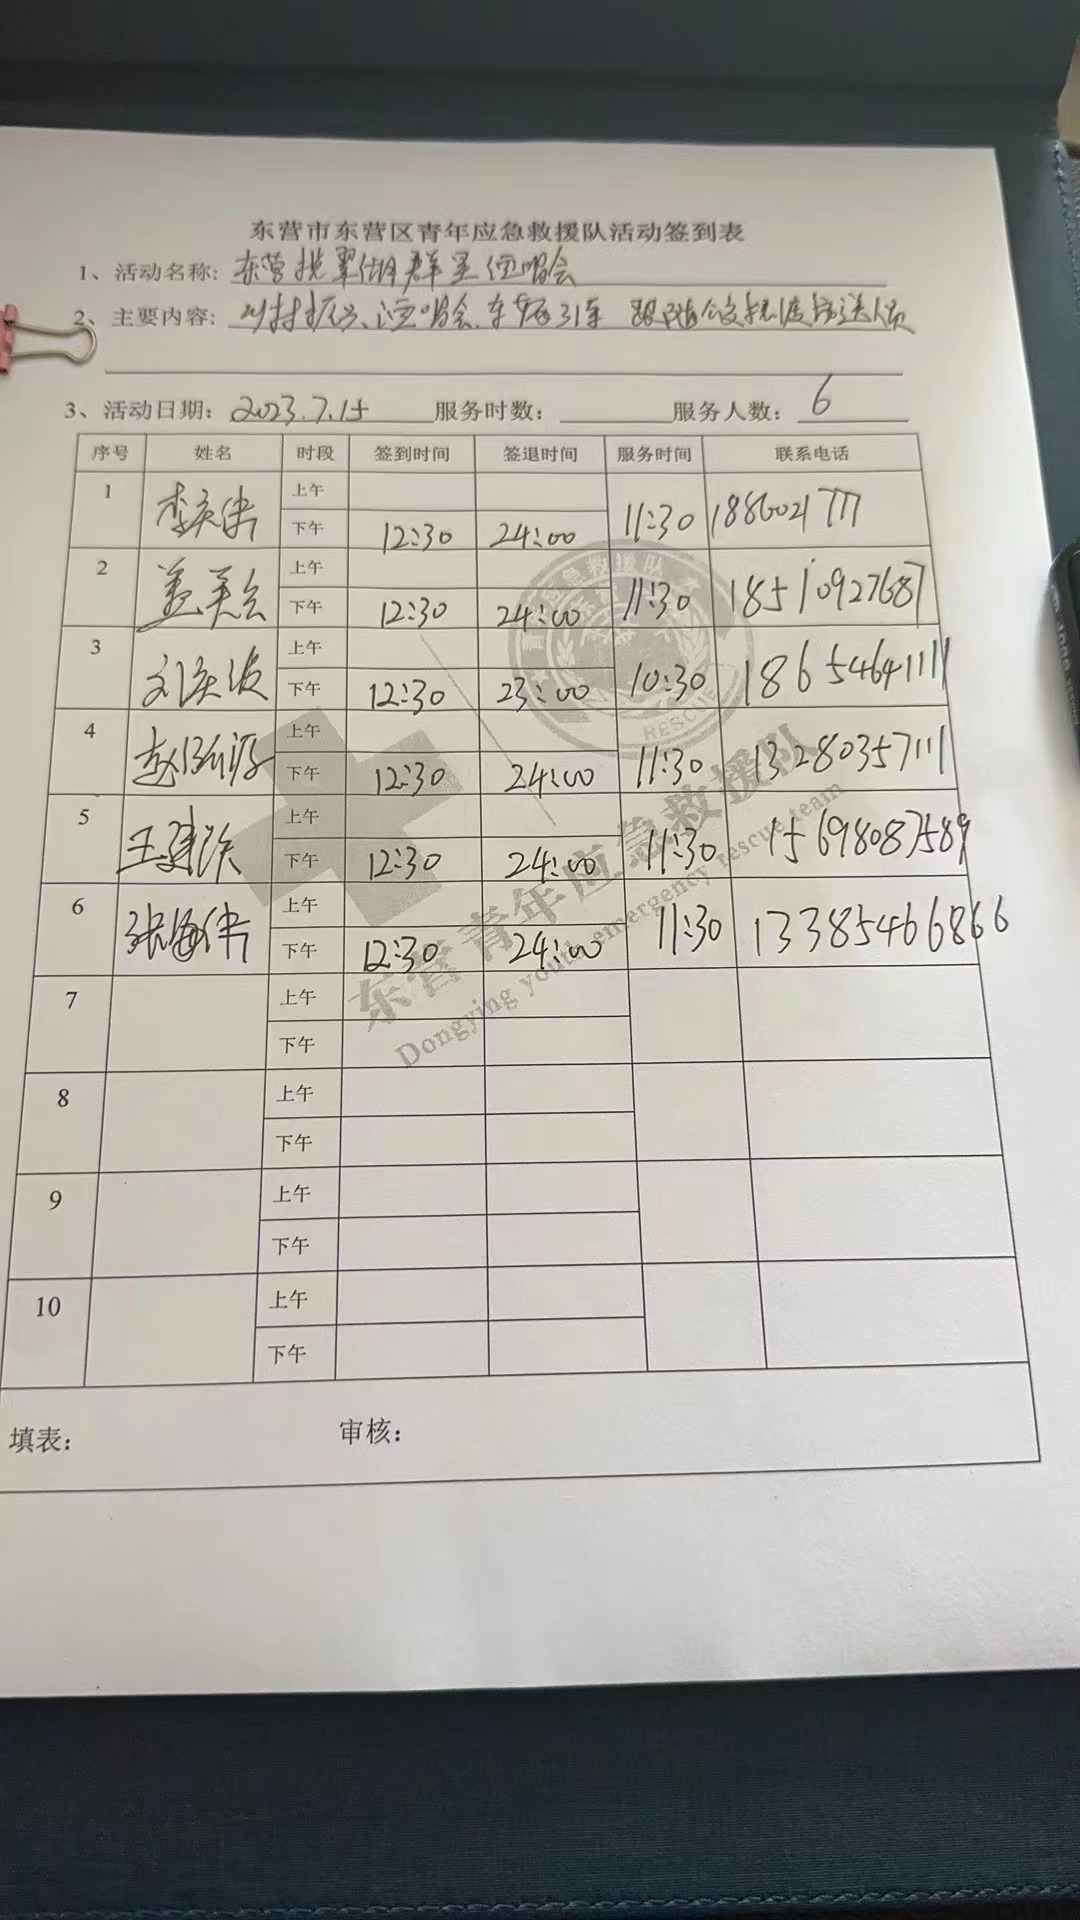 东营市东营区青年应急救援队活动签到表
1、活动名称: 东营揽翠湖群星演唱会
2、主要内容: 演唱会 车辆引导
3、活动日期: 2023.7.15 服务时数: 服务人数: 6
序号 姓名 时段 签到时间 签退时间 服务时间 联系电话
1 上午
下午 12:30 24:00 11:30
2 盖美会 上午
下午 12:30 24:00 11:30 18510927687
3 上午
下午 12:30 23:00 10:30 18654641111
4 上午
下午 12:30 24:00 11:30 13280357111
5 上午
下午 12:30 24:00 11:30 15698087589
6 张海伟 上午
下午 12:30 24:00 11:30 13385466866
7 上午
下午
8 上午
下午
9 上午
下午
10 上午
下午
填表: 审核:
东营青年应急救援队
Dongying youth emergency rescue team
应急救援队
RESCUE